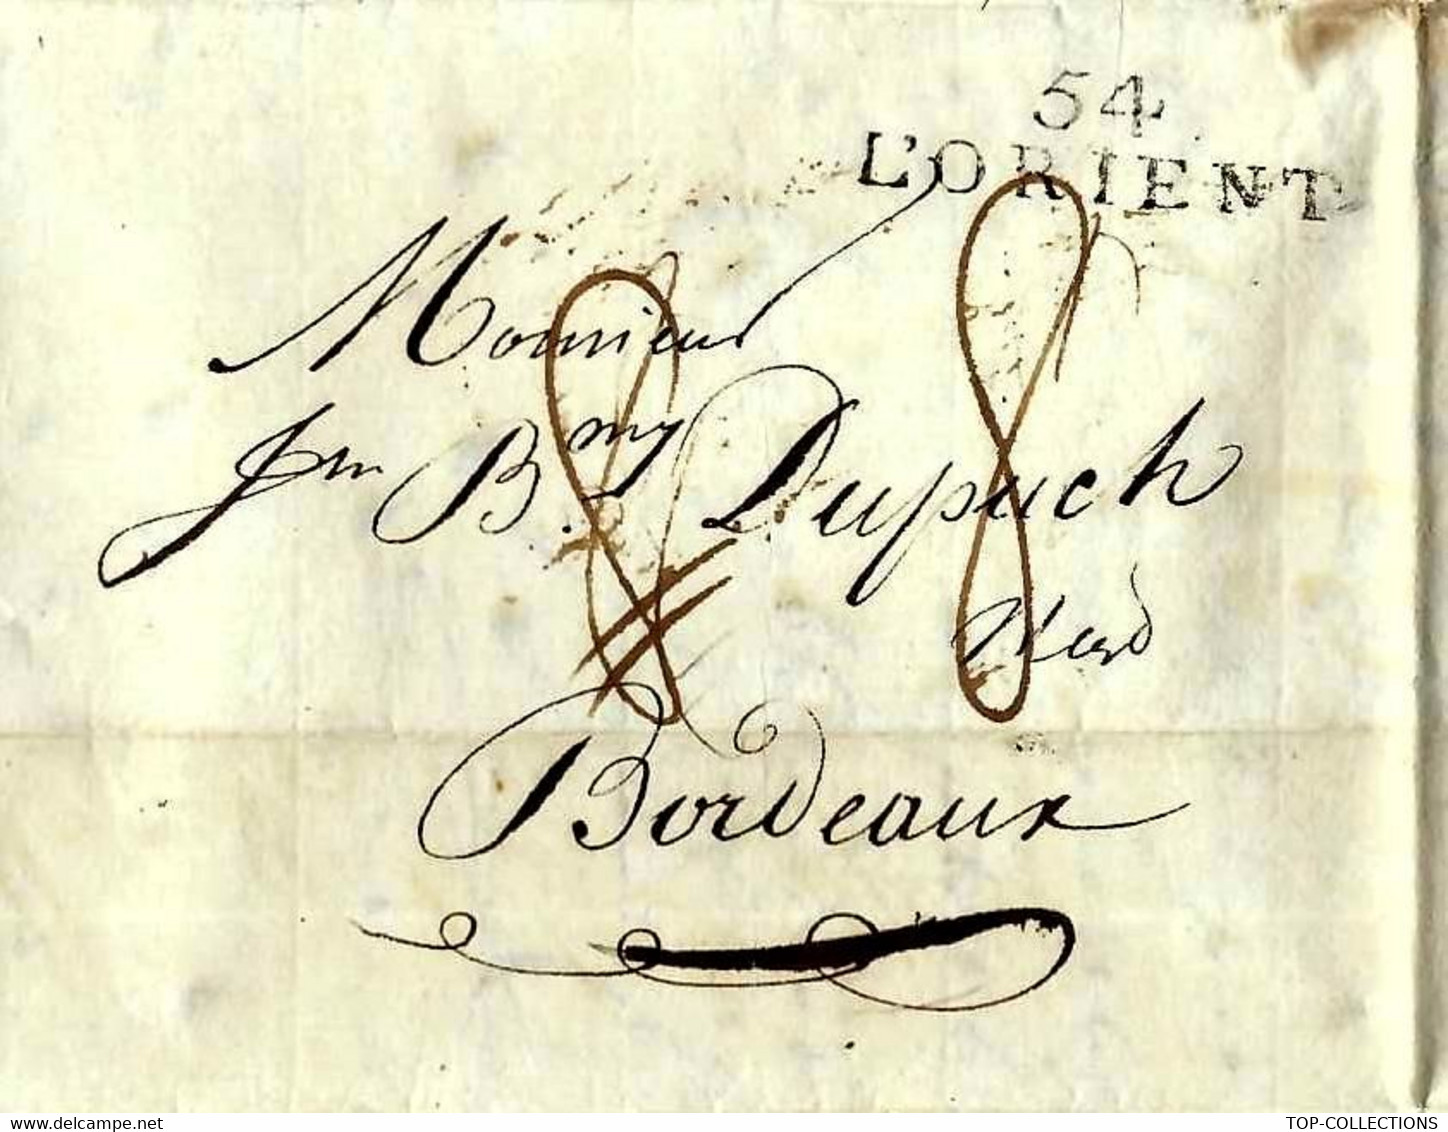 54
L'ORIENT
8 8
Monsieur
Jn Bmy Dupuch
Bordeaux
delcampe.net
TOP-COLLECTIONS